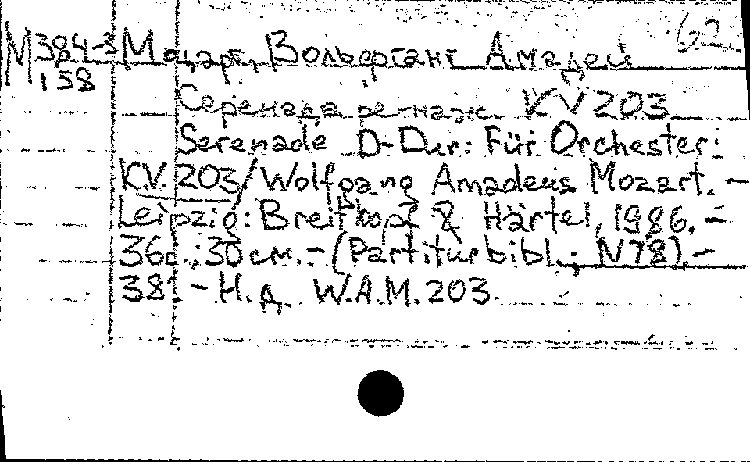 М384-3 Моцарт, Вольфганг Амадей 62
158
Серенада ре-маж. KV 203
Serenade D-Dur: Für Orchester:
KV. 203/Wolfgang Amadeus Mozart. —
Leipzig: Breitkopf & Härtel, 1986. —
36с.; 30см. — (Partiturbibl.; N78). —
38! — Н.д. W.A.M. 203.